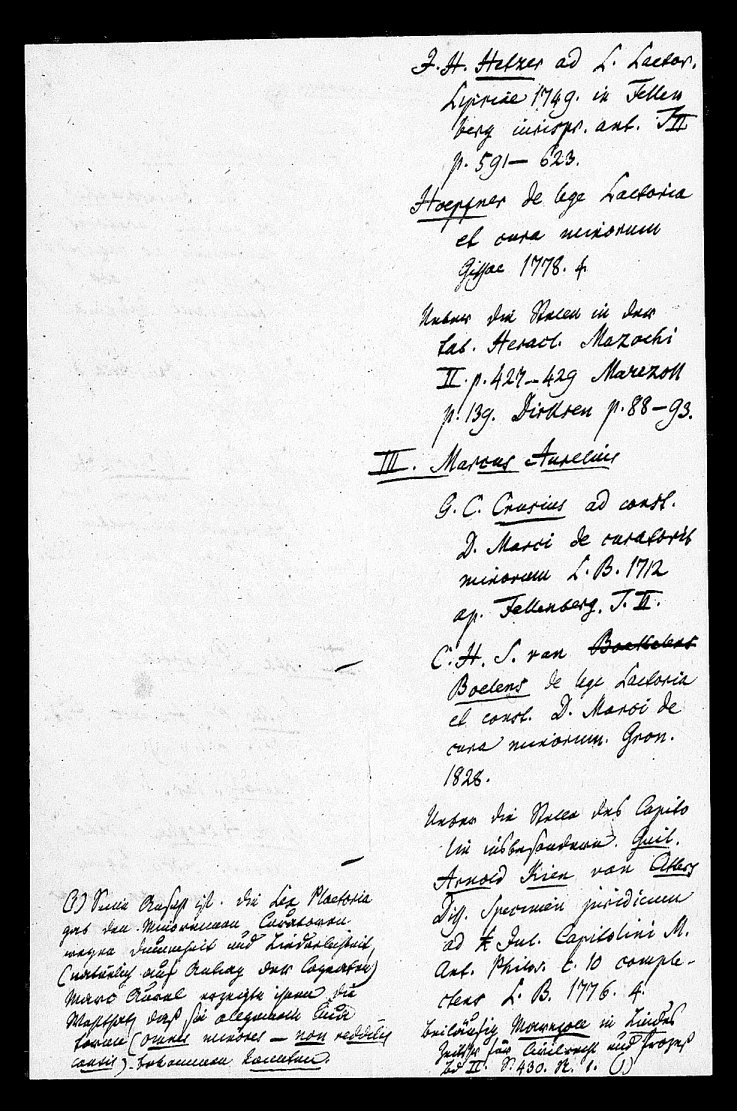 F. H. Hetzer ad L. Laetor.
Lipsiae 1749. in Fellen
berg iurispr. ant. T II
p. 591 — 623.
Hoepfner de lege Laetoria
et cura minorum
Gissae 1778. 4
Ueber die Stellen in der
tab. Heracl. Mazochi
II. p. 427 — 429 Marezoll
p. 139. Dirksen p. 88 — 93.
III. Marcus Aurelius
G. C. Crusius ad const.
D. Marci de curatoris
minorum L. B. 1712
ap. Fellenberg. T. II.
C. H. S. van
Boelens de lege Laetoria
et const. D. Marci de
cura minorum. Gron.
1828.
Ueber die Stelle des Capito
lin insbesondere. Guil.
Arnold Kien van Citters
Diss. Specimen juridicum
ad Jul. Capitolini M.
Ant. Philos. c. 10 comple-
ctens L. B. 1776. 4
beiläufig Marezoll in Lindes
Zeitschr. für Civilrecht und Prozeß
Bd II. S. 430. N. 1. (1)
(1) Seine Ansicht ist. die Lex Plaetoria
gab den Minorennen Curatoren
wegen Dummheit und Liederlichkeit
(natürlich auf Antrag der Cognaten)
Marc Aurel erzeigte ihnen die
Wohlthat, daß sie allgemein Cura
toren (omnes minores — non redditis
causis). bekommen konnten.